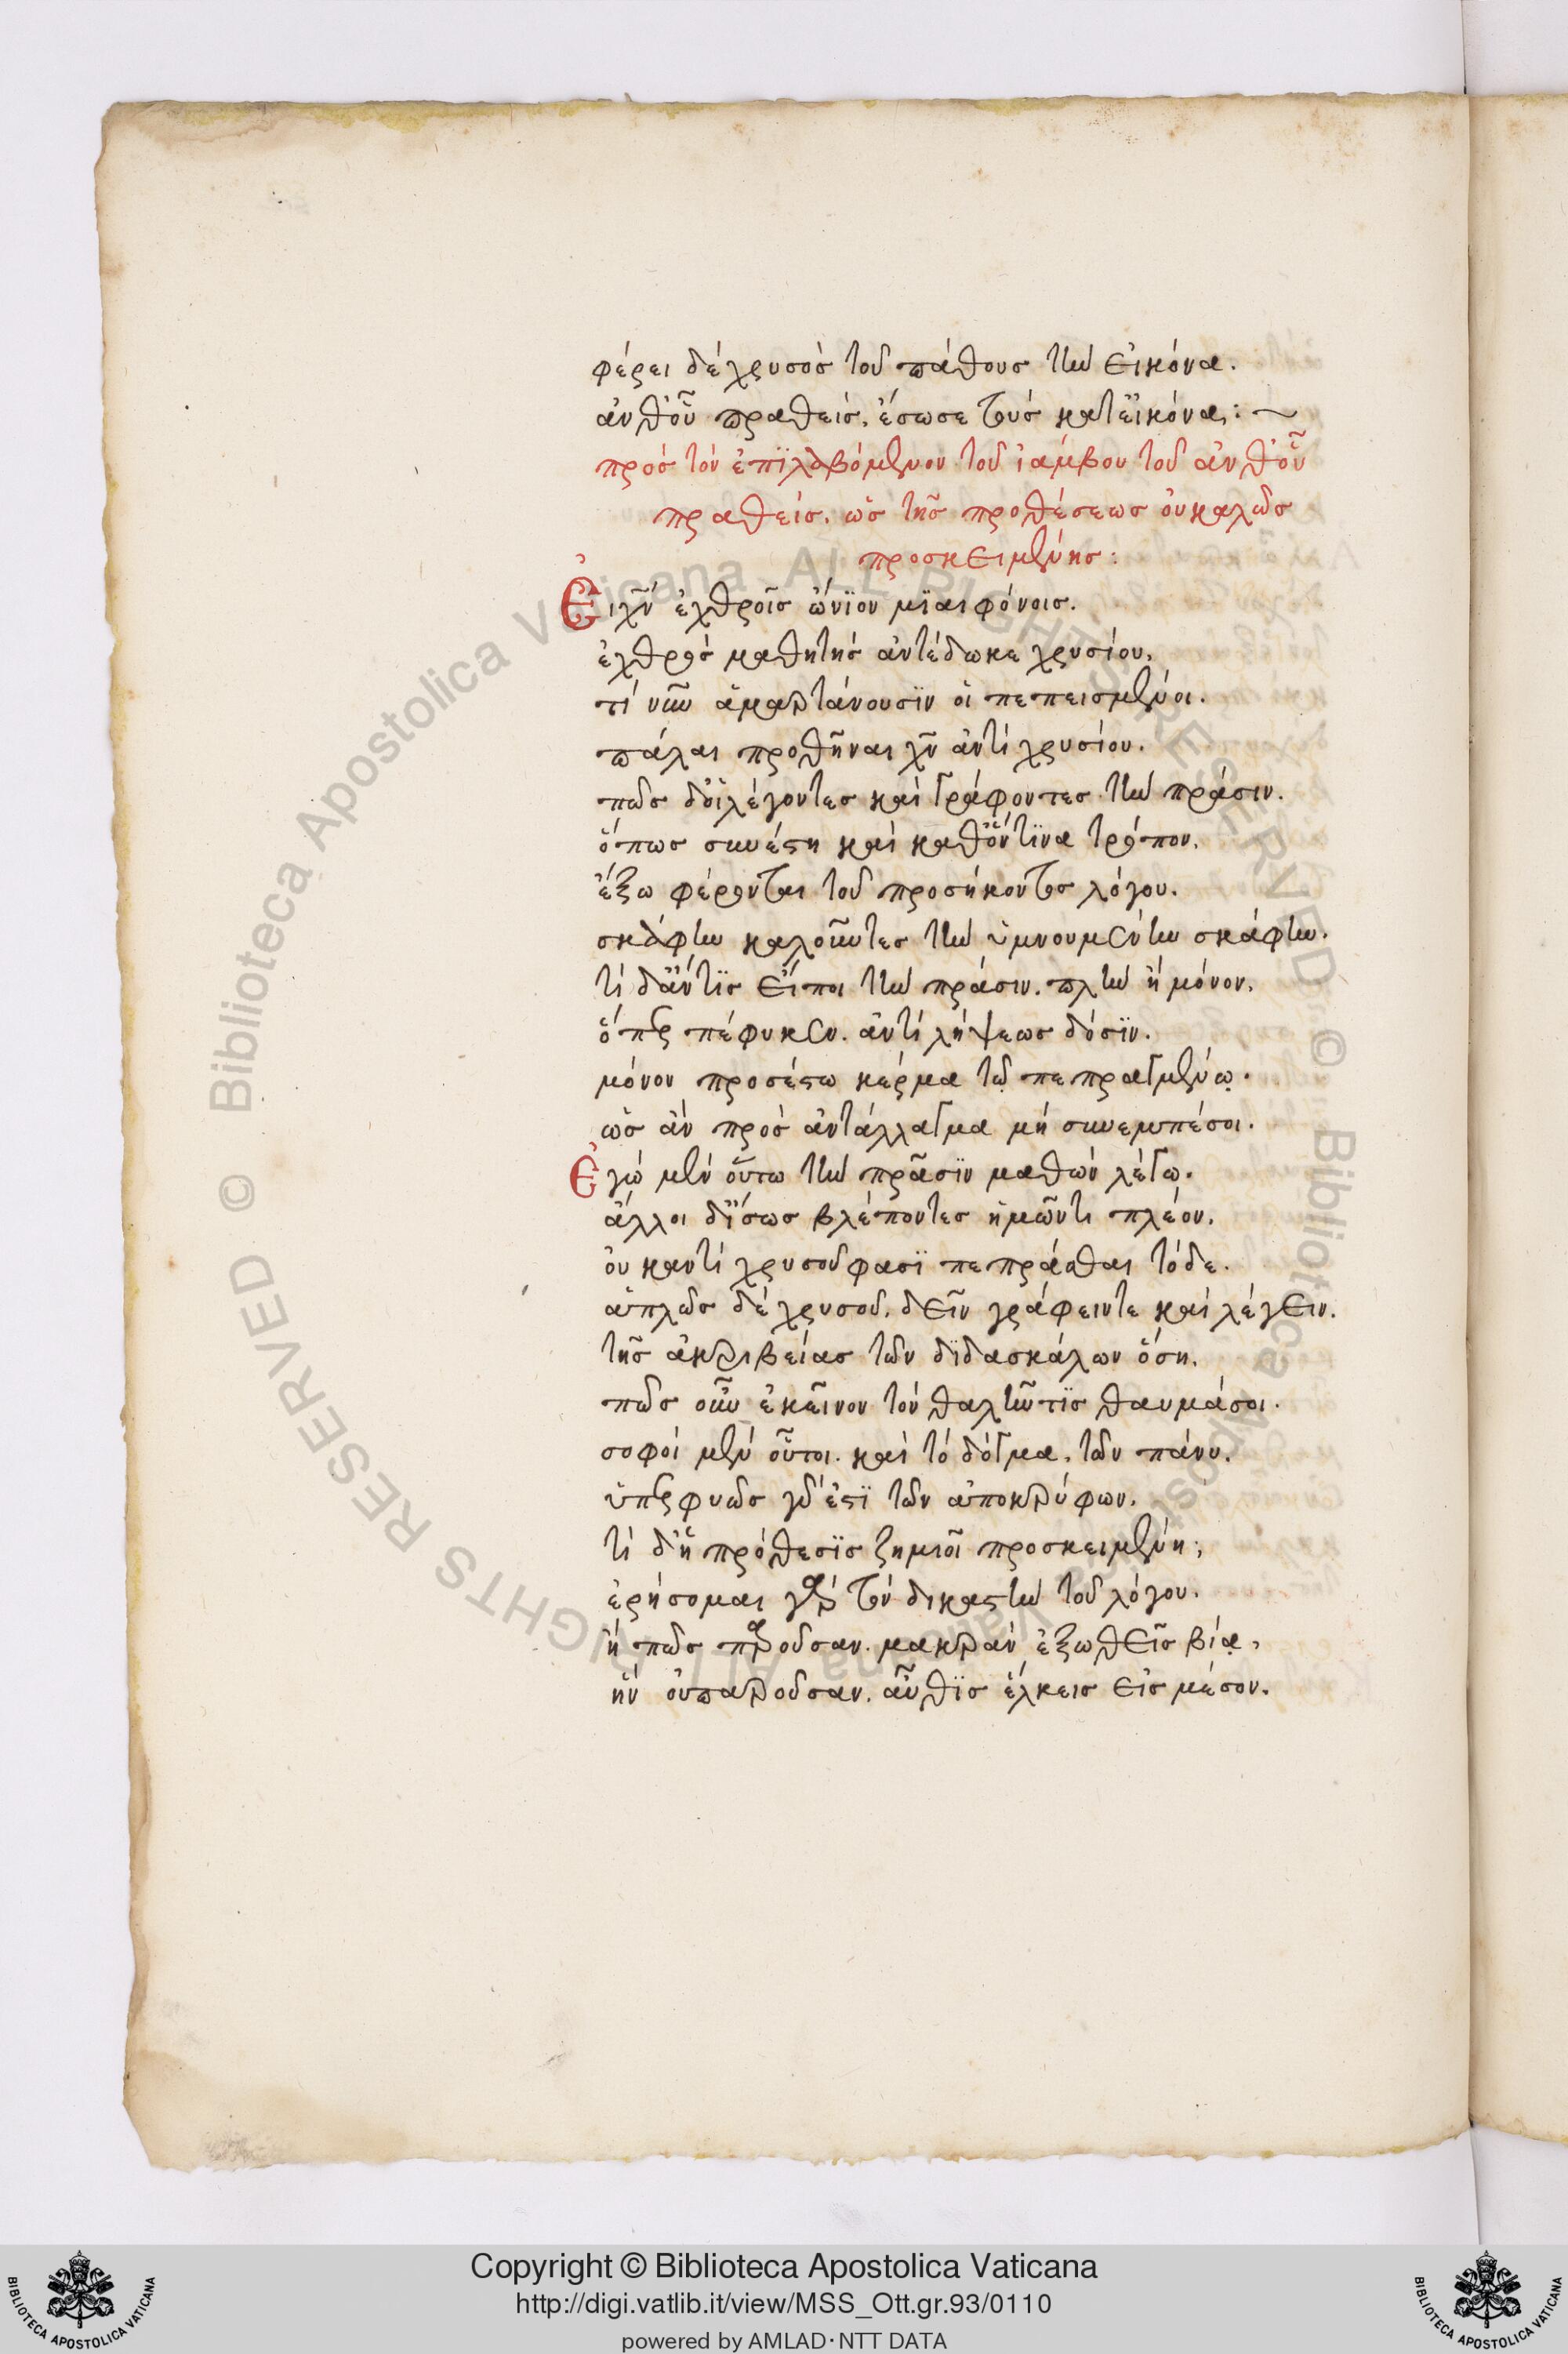 φέρει δὲ χρυσὸς τοῦ πάθους τὴν εἰκόνα.
ἀνθ' οὗ πραθεὶς, ἔσωσε τοὺς κατ' εἰκόνα:~
πρὸς τὸν ἐπιλαβόμενον τοῦ ἰάμβου τοῦ ἀνθ' οὗ
πραθεὶς. ὡς τῆς προθέσεως οὐ καλῶς
προσκειμένης:
Εἰ χν ἐχθροῖς ὤνιον μιαιφόνοις.
ἐχθρὸς μαθητὴς ἀντέδωκε χρυσίου,
τί νῦν ἁμαρτάνουσιν οἱ πεπεισμένοι.
πάλαι προθῆναι χν ἀντὶ χρυσίου.
πῶς δ' οἱ λέγοντες καὶ γράφοντες τὴν πράσιν.
ὅπως συνέστη καὶ καθ' ὅντινα τρόπον.
ἔξω φέρονται τοῦ προσήκοντος λόγου.
σκάφην καλοῦντες τὴν ὑμνουμένην σκάφην.
τί δ' ἄν τις εἴποι τὴν πράσιν. πλὴν ἢ μόνον.
ὅπερ πέφυκεν. ἀντὶ λήψεως δόσιν.
μόνον προσέστω κέρμα τῷ πεπραγμένῳ.
ὡς ἂν πρὸς ἀντάλλαγμα μὴ συνεμπέσοι.
Ἐγὼ μὲν οὕτω τὴν πρᾶσιν μαθὼν λέγω.
ἄλλοι δ' ἴσως βλέποντες ἡμῶν τι πλέον.
οὐκ ἀντὶ χρυσοῦ φασὶ πεπρᾶσθαι τόδε.
ἁπλῶς δὲ χρυσοῦ. δεῖν γράφειν τε καὶ λέγειν.
τῆς ἀκριβείας τῶν διδασκάλων ὅση.
πῶς οὖν ἐκεῖνον τὸν θαλῆν τις θαυμάσοι.
σοφοὶ μὲν οὗτοι. καὶ τὸ δόγμα. τῶν πάνυ.
ὑπερφυῶς γοῦ ἐστὶ τῶν ἀποκρύφων.
τί δ' ἡ πρόθεσις ζημιοῖ προσκειμένη;
ἐρήσομαι γὰρ τὸν δικαστὴν τοῦ λόγου.
ἢ πῶς παροῦσαν. μακρὰν ἐξωθεῖς βίᾳ,
ἣν οὐ παροῦσαν. αὖθις ἕλκεις εἰς μέσον.
Copyright © Biblioteca Apostolica Vaticana
http://digi.vatlib.it/view/MSS_Ott.gr.93/0110
powered by AMLAD·NTT DATA
BIBLIOTECA APOSTOLICA VATICANA
BIBLIOTECA APOSTOLICA VATICANA
© Biblioteca Apostolica Vaticana ALL RIGHTS RESERVED © Biblioteca Apostolica Vaticana ALL RIGHTS RESERVED